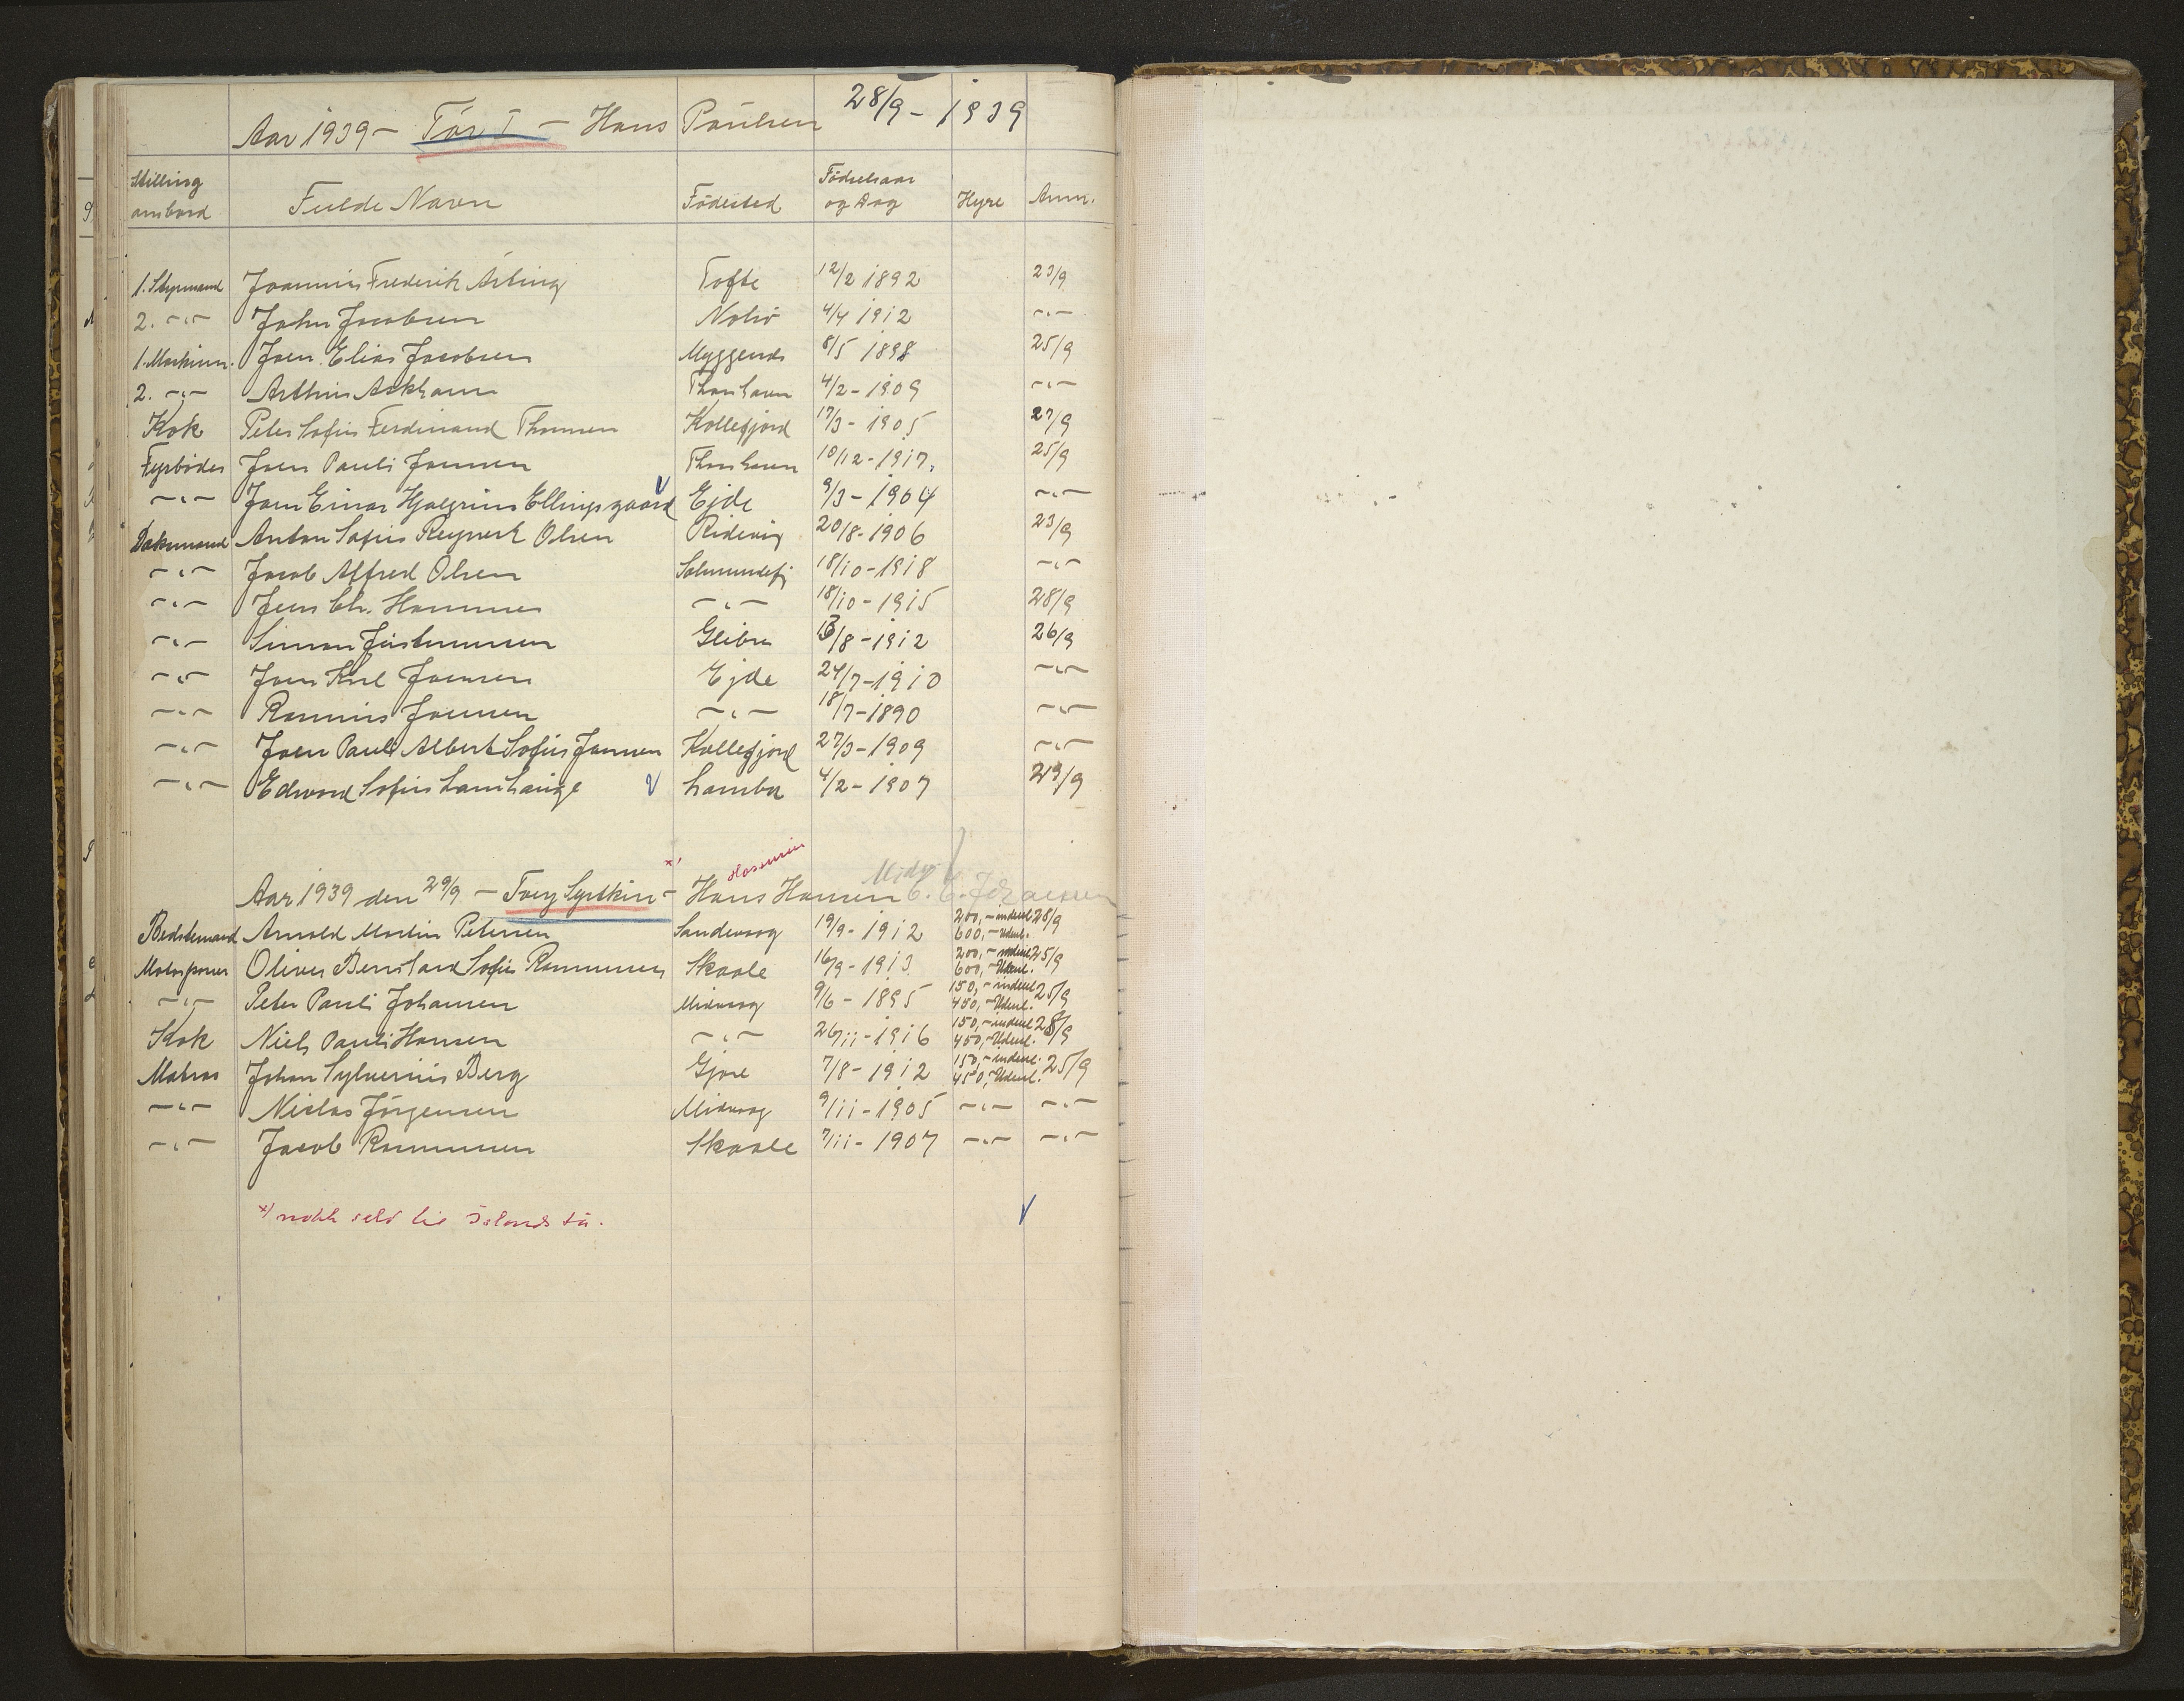 28/9 - 1939
Aar 1939 - Tór I - Hans Paulsen
Stilling ombord Fulde Navn Födested Födselsaar og Dag Hyre Anm.
1. Styrmand Joannis Frederik Årting Tofte 12/2 1892 23/9
2. -"- John Jacobsen Nolsö 4/4 1912 -"-
1. Maskinm. Joen Elias Jacobsen Myggenæs 8/5 1898 25/9
2. -"- Arthur Askham Thorshavn 4/2 - 1909 -"-
Kok Peter Sofus Ferdinand Thomsen Kollefjord 17/3 - 1905 27/9
Fyrböder Joen Pauli Joensen Thorshavn 10/12 - 1917. 25/9
-"- Joen Einar Hjalgrim Ellingsgaard Ejde 9/3 - 1904 -"-
Dæksmand Anton Sofus Reynert Olsen Ridevig 20/8 - 1906 23/9
-"- Jacob Alfred Olsen Salmundefj 18/10 - 1918 -"-
-"- Jens Chr. Hammer -"- 18/10 - 1915 28/9
-"- Simon Justinussen Glibre /8 - 1912 26/9
-"- Joen Karl Joensen Ejde 24/7 - 1910 -"-
-"- Rasmus Joensen -"- 18/7 - 1890 -"-
-"- Joen Pauli Albert Sofus Joensen Kollefjord 27/3 - 1909 -"-
-"- Edward Sofus Lamhauge Lamba 4/2 - 1907 29/9
Aar 1939 den 29/9 - Tvey Systkin - x) Hans Hansen C. C. Johansen
Bedstemand Arnold Martin Petersen Sandevaag 19/9 - 1912 200,- indenl. 600,- Udenl. 28/9
Motorpasser Oliver Bernhard Sofus Rasmussen Skaale 16/9 - 1913 200,- indenl. 600,- Udenl. 25/9
-"- Peter Pauli Johansen Midvaag 9/6 - 1895 150,- indenl. 450,- Udenl. 25/9
Kok Niels Pauli Hansen -"- 26/11 - 1916 150,- indenl. 450,- Udenl. 28/9
Matros Johan Sylverius Berg Gjove 7/8 - 1912 150,- indenl. 450,- Udenl. 25/9
-"- Niclas Jörgensen Midvaag 9/11 - 1905 -"- -"-
-"- Jacob Rasmussen Skaale 7/11 - 1907 -"- -"-
x) seld Íslands